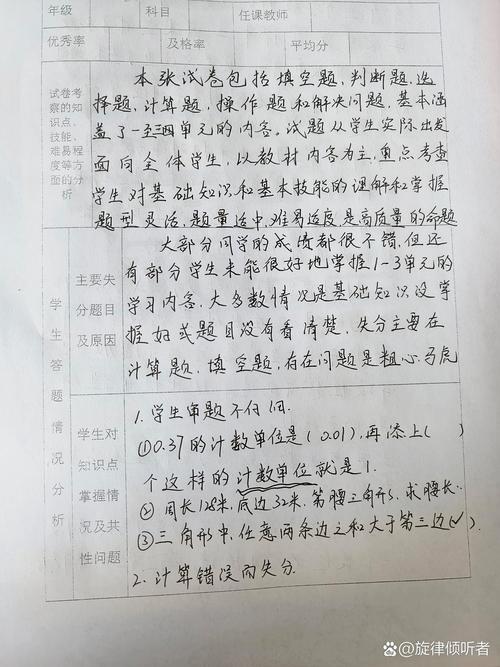 年级 科目 任课教师
优秀率 及格率 平均分
试卷考察的知识点、技能、难易程度等方面的分析
本张试卷包括填空题,判断题,选
择题,计算题,操作题和解决问题,基本涵
盖了一至四单元的内容。试题从学生实际出发
面向全体学生,以教材内容为主,重点考查
学生对基础知识和基本技能的理解和掌握
题型灵活,题量适中,难易适度,是高质量的命题
学生答题情况分析
主要失分题目及原因
大部分同学的成绩都很不错,但还
有部分学生未能很好地掌握1-3单元的
学习内容,大多数情况是基础知识没掌
握好或题目没有看清楚,失分主要在
计算题,填空题,存在问题是粗心马虎
学生对知识点掌握情况及共性问题
1.学生审题不仔细.
①0.37的计数单位是(0.01),再添上( )
个这样的计数单位就是1.
② 周长128米,底边32米,等腰三角形,求腰长…
③三角形中,任意两条边之和大于第三边(✓).
2.计算错误而失分.
@旋律倾听者